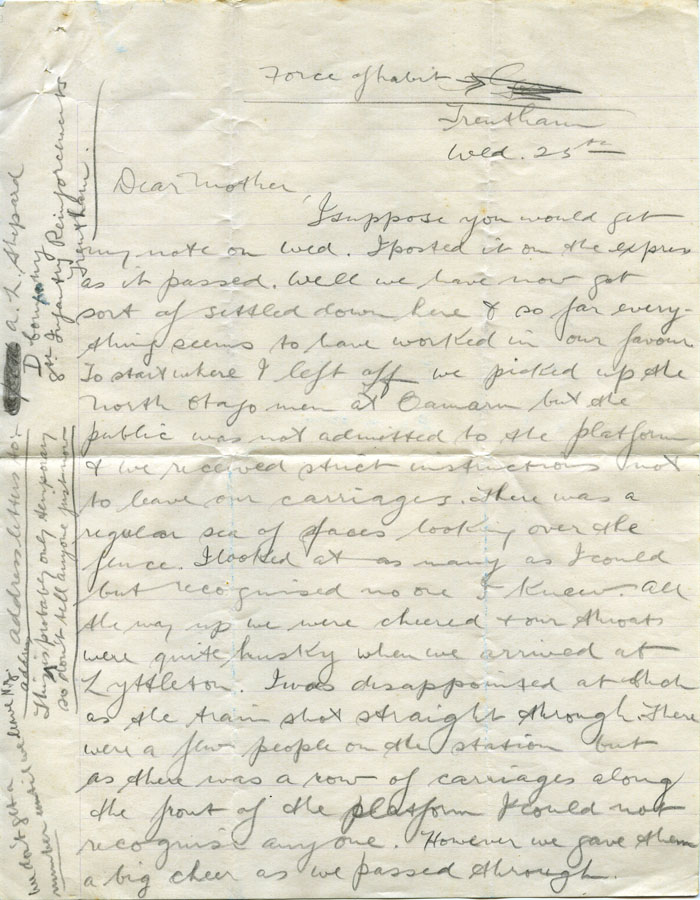 Force of habit →
Trentham
Wed. 25th
Dear Mother
I suppose you would get
my note on Wed. I posted it on the express
as it passed. Well we have now got
sort of settled down here & so far every-
thing seems to have worked in our favour
To start where I left off we picked up the
North Otago men at Oamaru but the
public was not admitted to the platform
& we received strict instructions not
to leave our carriages. There was a
regular sea of faces looking over the
fence. I looked at as many as I could
but recognised no one I knew. All
the way up we were cheered & our throats
were quite husky when we arrived at
Lyttleton. I was disappointed at
as the train shot straight through. There
were a few people on the station but
as there was a row of carriages along
the front of the platform I could not
recognise anyone. However we gave them
a big cheer as we passed through.
address letters to:-
A. L. Shepard
D Company
8th Infantry Reinforcements
Trentham.
This is probably only temporary
so don't tell anyone just now
We don't get a
number until we leave N.Z.